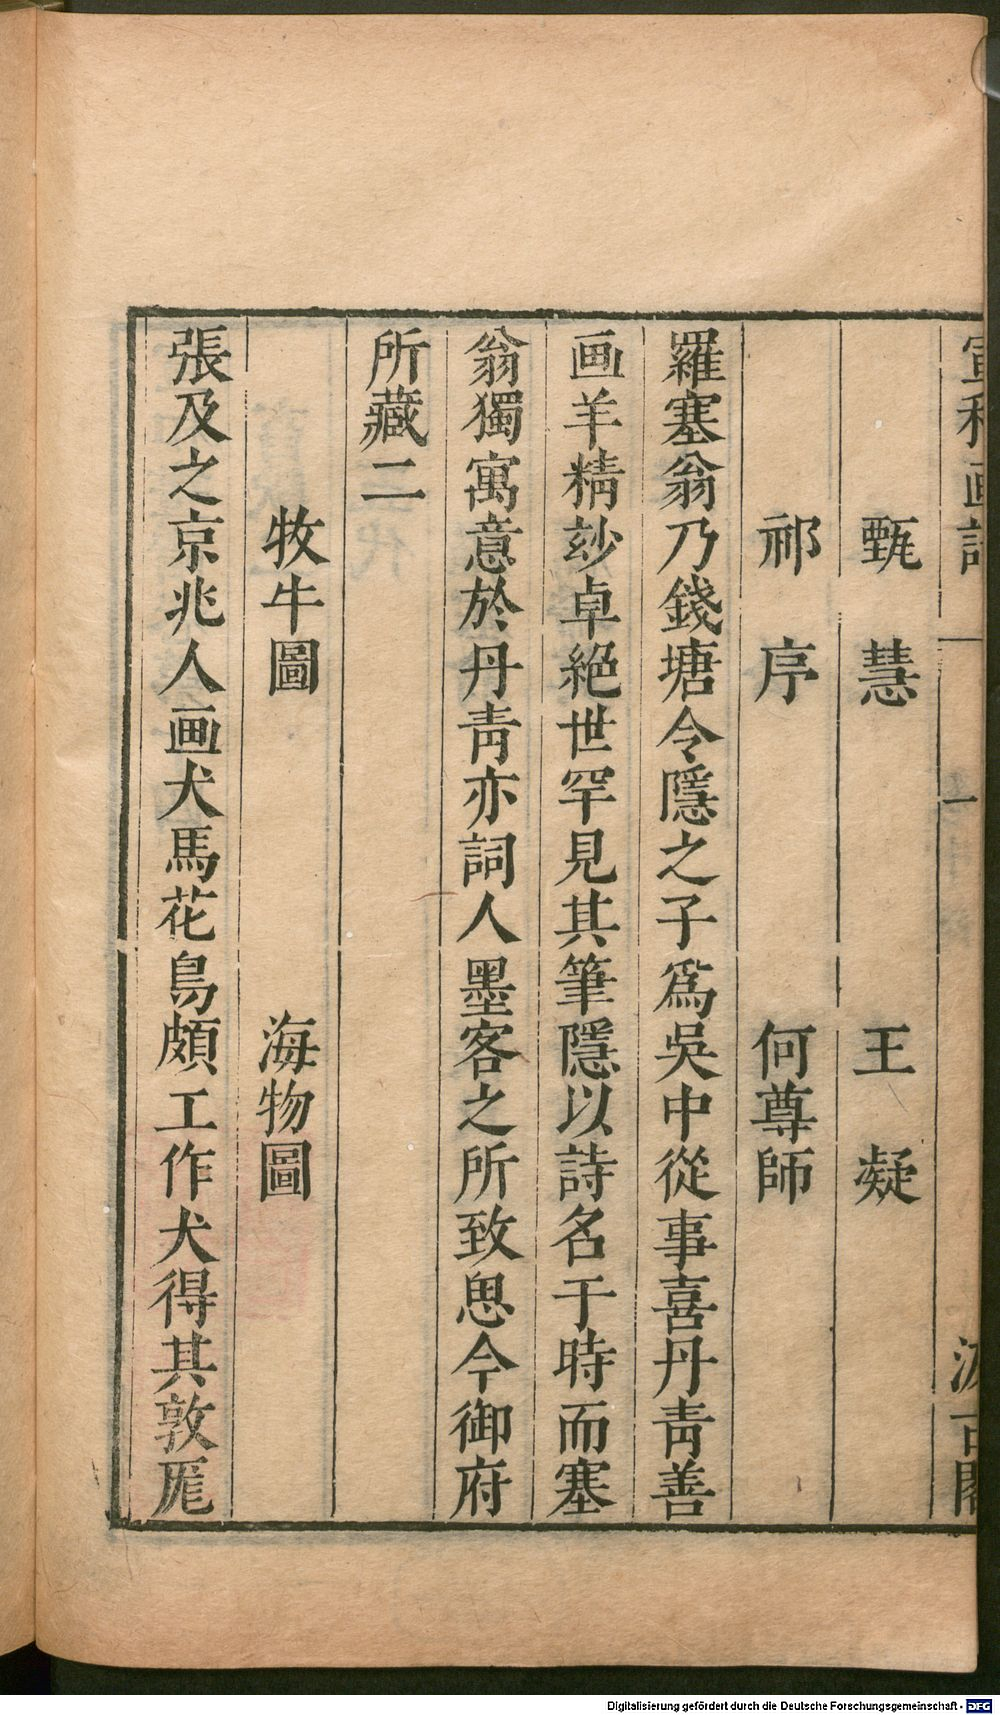 宣和画譜 一 汲古閣
甄 慧 王 凝
祁 序 何尊師
羅塞翁乃錢塘令隱之子爲吳中從事喜丹靑善
画羊精玅卓絕世罕見其筆隱以詩名于時而塞
翁獨寓意於丹靑亦詞人墨客之所致思今御府
所藏二
牧牛圖 海物圖
張及之京兆人画犬馬花鳥頗工作犬得其敦厖
Digitalisierung gefördert durch die Deutsche Forschungsgemeinschaft - DFG